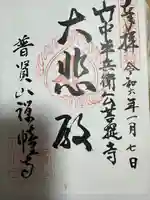 奉拝
令和六年一月七日
山中山兵衛公菩提寺
大悲殿
普賢山禅幢寺